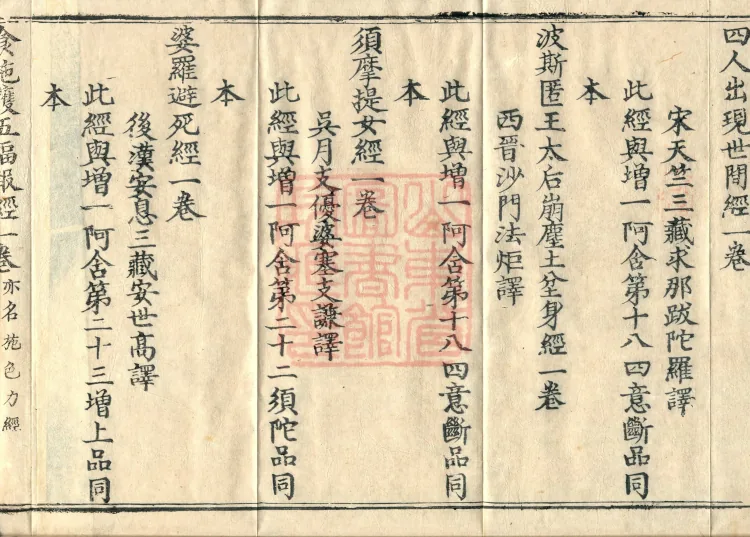 四人出現世間經一卷
宋天竺三藏求那跋陀羅譯
此經與增一阿含第十八四意斷品同
本
波斯匿王太后崩塵土坌身經一卷
西晉沙門法炬譯
此經與增一阿含第十八四意斷品同
本
須摩提女經一卷
吳月支優婆塞支謙譯
此經與增一阿含第二十二須陀品同
本
婆羅避死經一卷
後漢安息三藏安世高譯
此經與增一阿含第二十三增上品同
本
食施獲五福報經一卷亦名施色力經